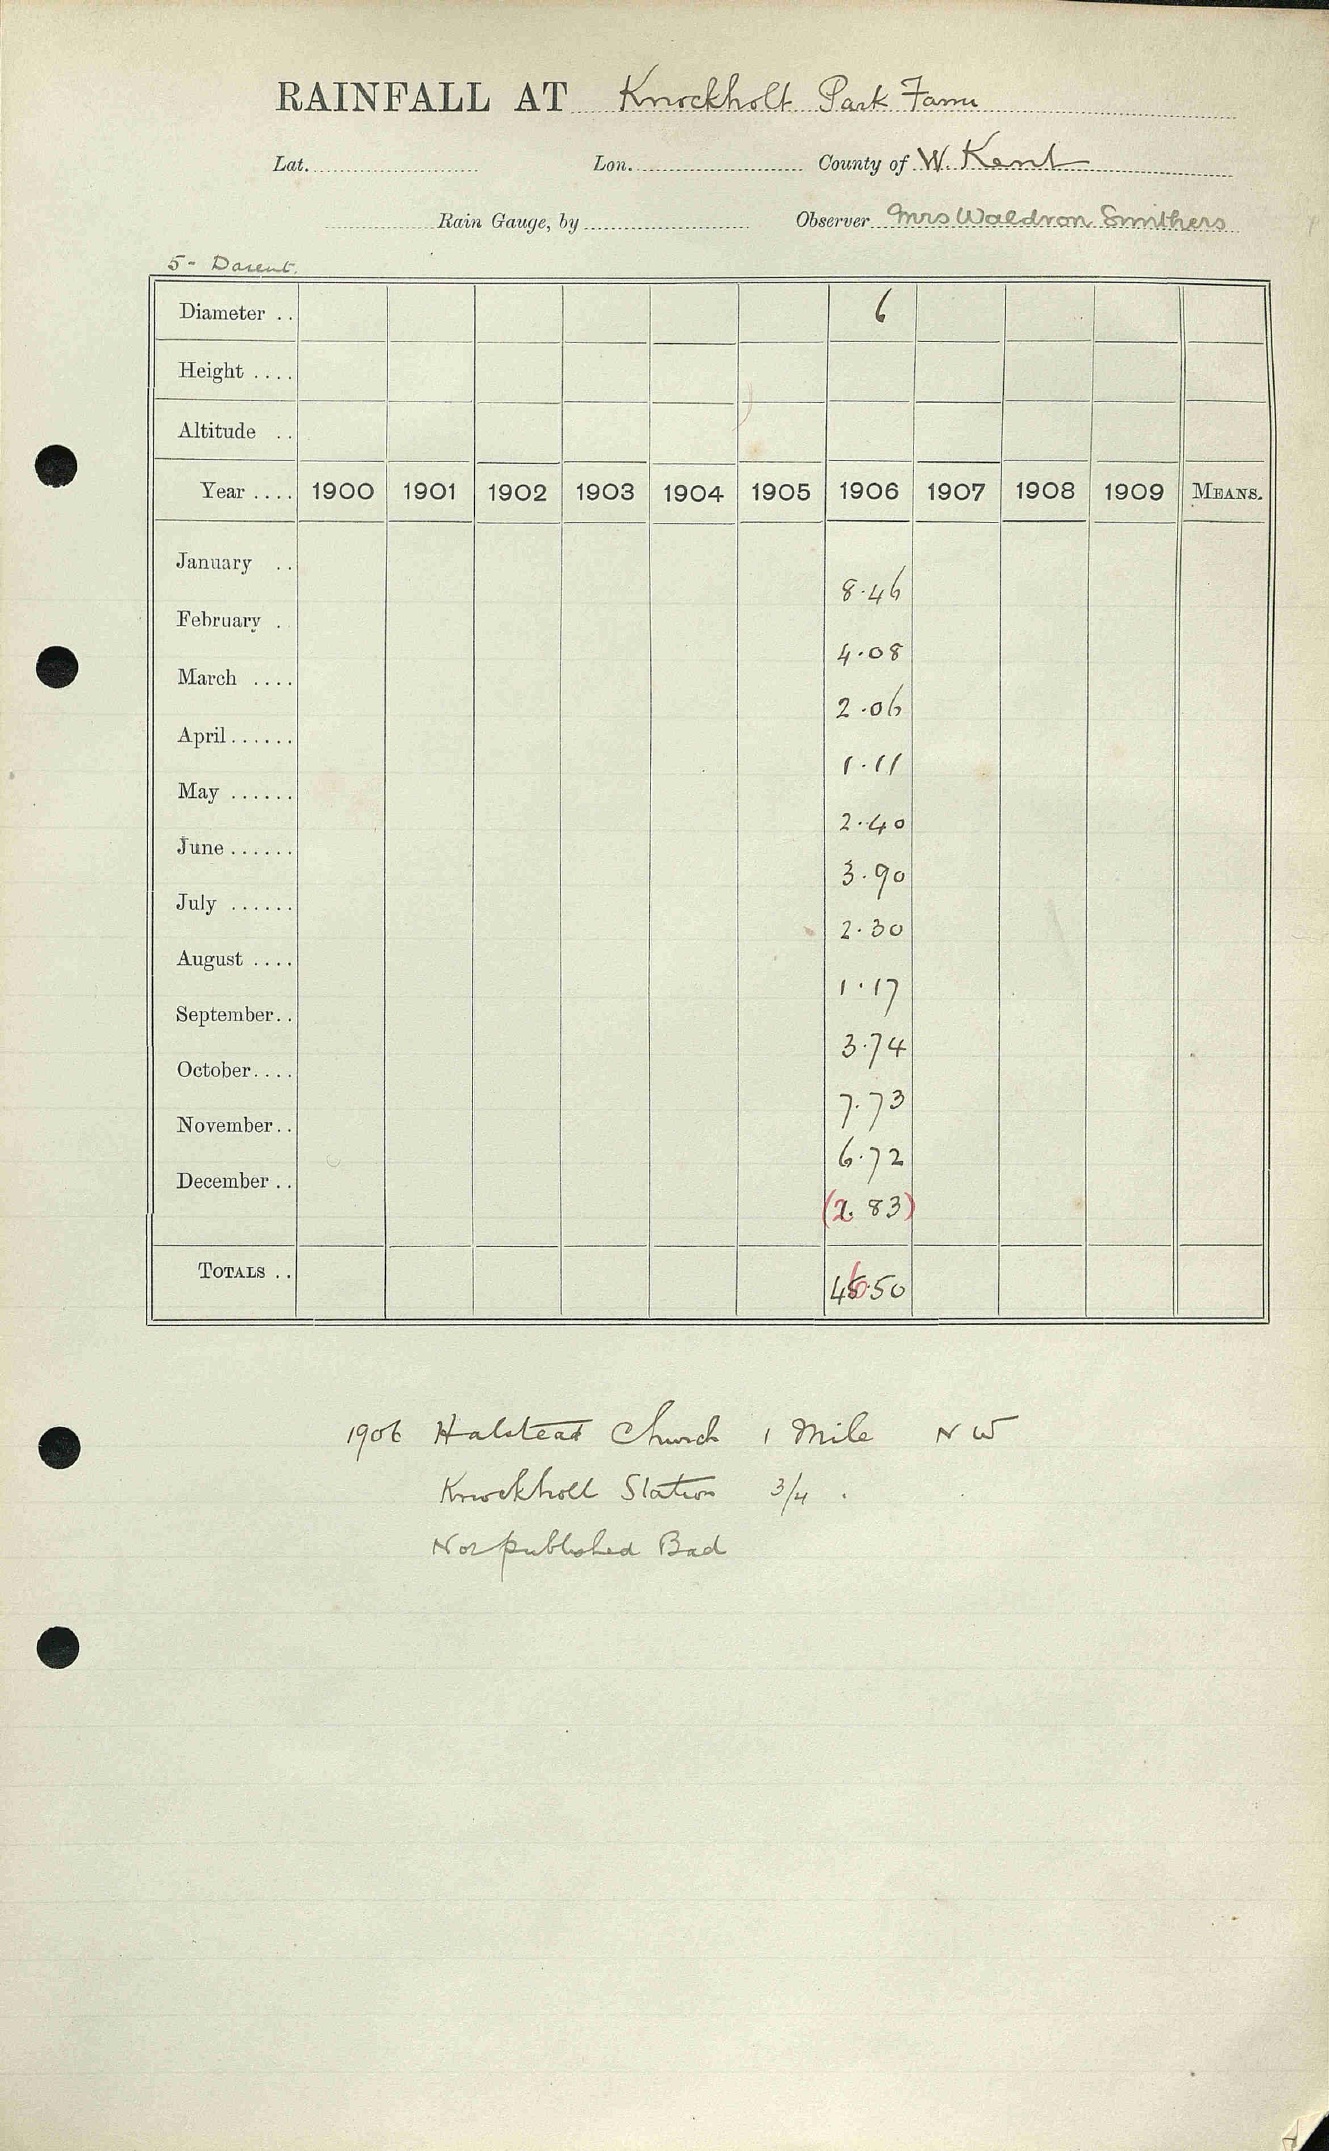 RAINFALL AT Knockholt Park Farm
Lat. Lon. County of W. Kent
Rain Gauge, by Observer Mrs Waldron Smithers
5 - Darent.
Diameter .. 6
Height ....
Altitude ..
Year .... 1900 1901 1902 1903 1904 1905 1906 1907 1908 1909 MEANS.
January .. 8.46
February . 4.08
March .... 2.06
April ...... 1.11
May ...... 2.40
June ...... 3.90
July ...... 2.30
August .... 1.17
September.. 3.74
October.... 7.73
November.. 6.72
December .. (2.83)
TOTALS .. 46.50
1906 Halstead Church 1 Mile NW
Knockholt Station 3/4 .
Not published Bad